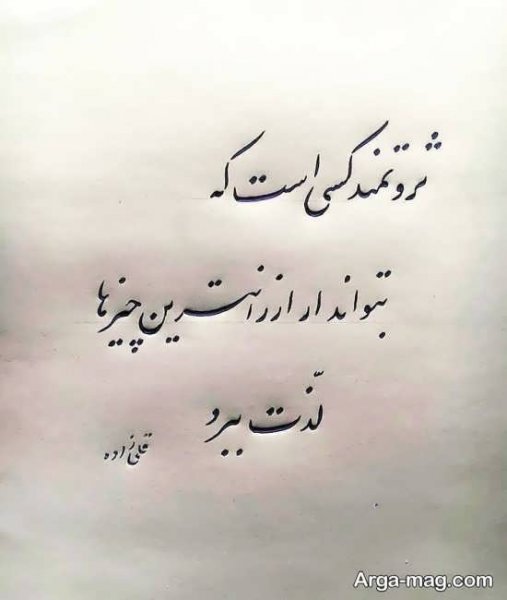 ثروتمند کسی است که
بتواند از ارزانترین چیزها
لذّت ببرد
قلی زاده
Arga-mag.com